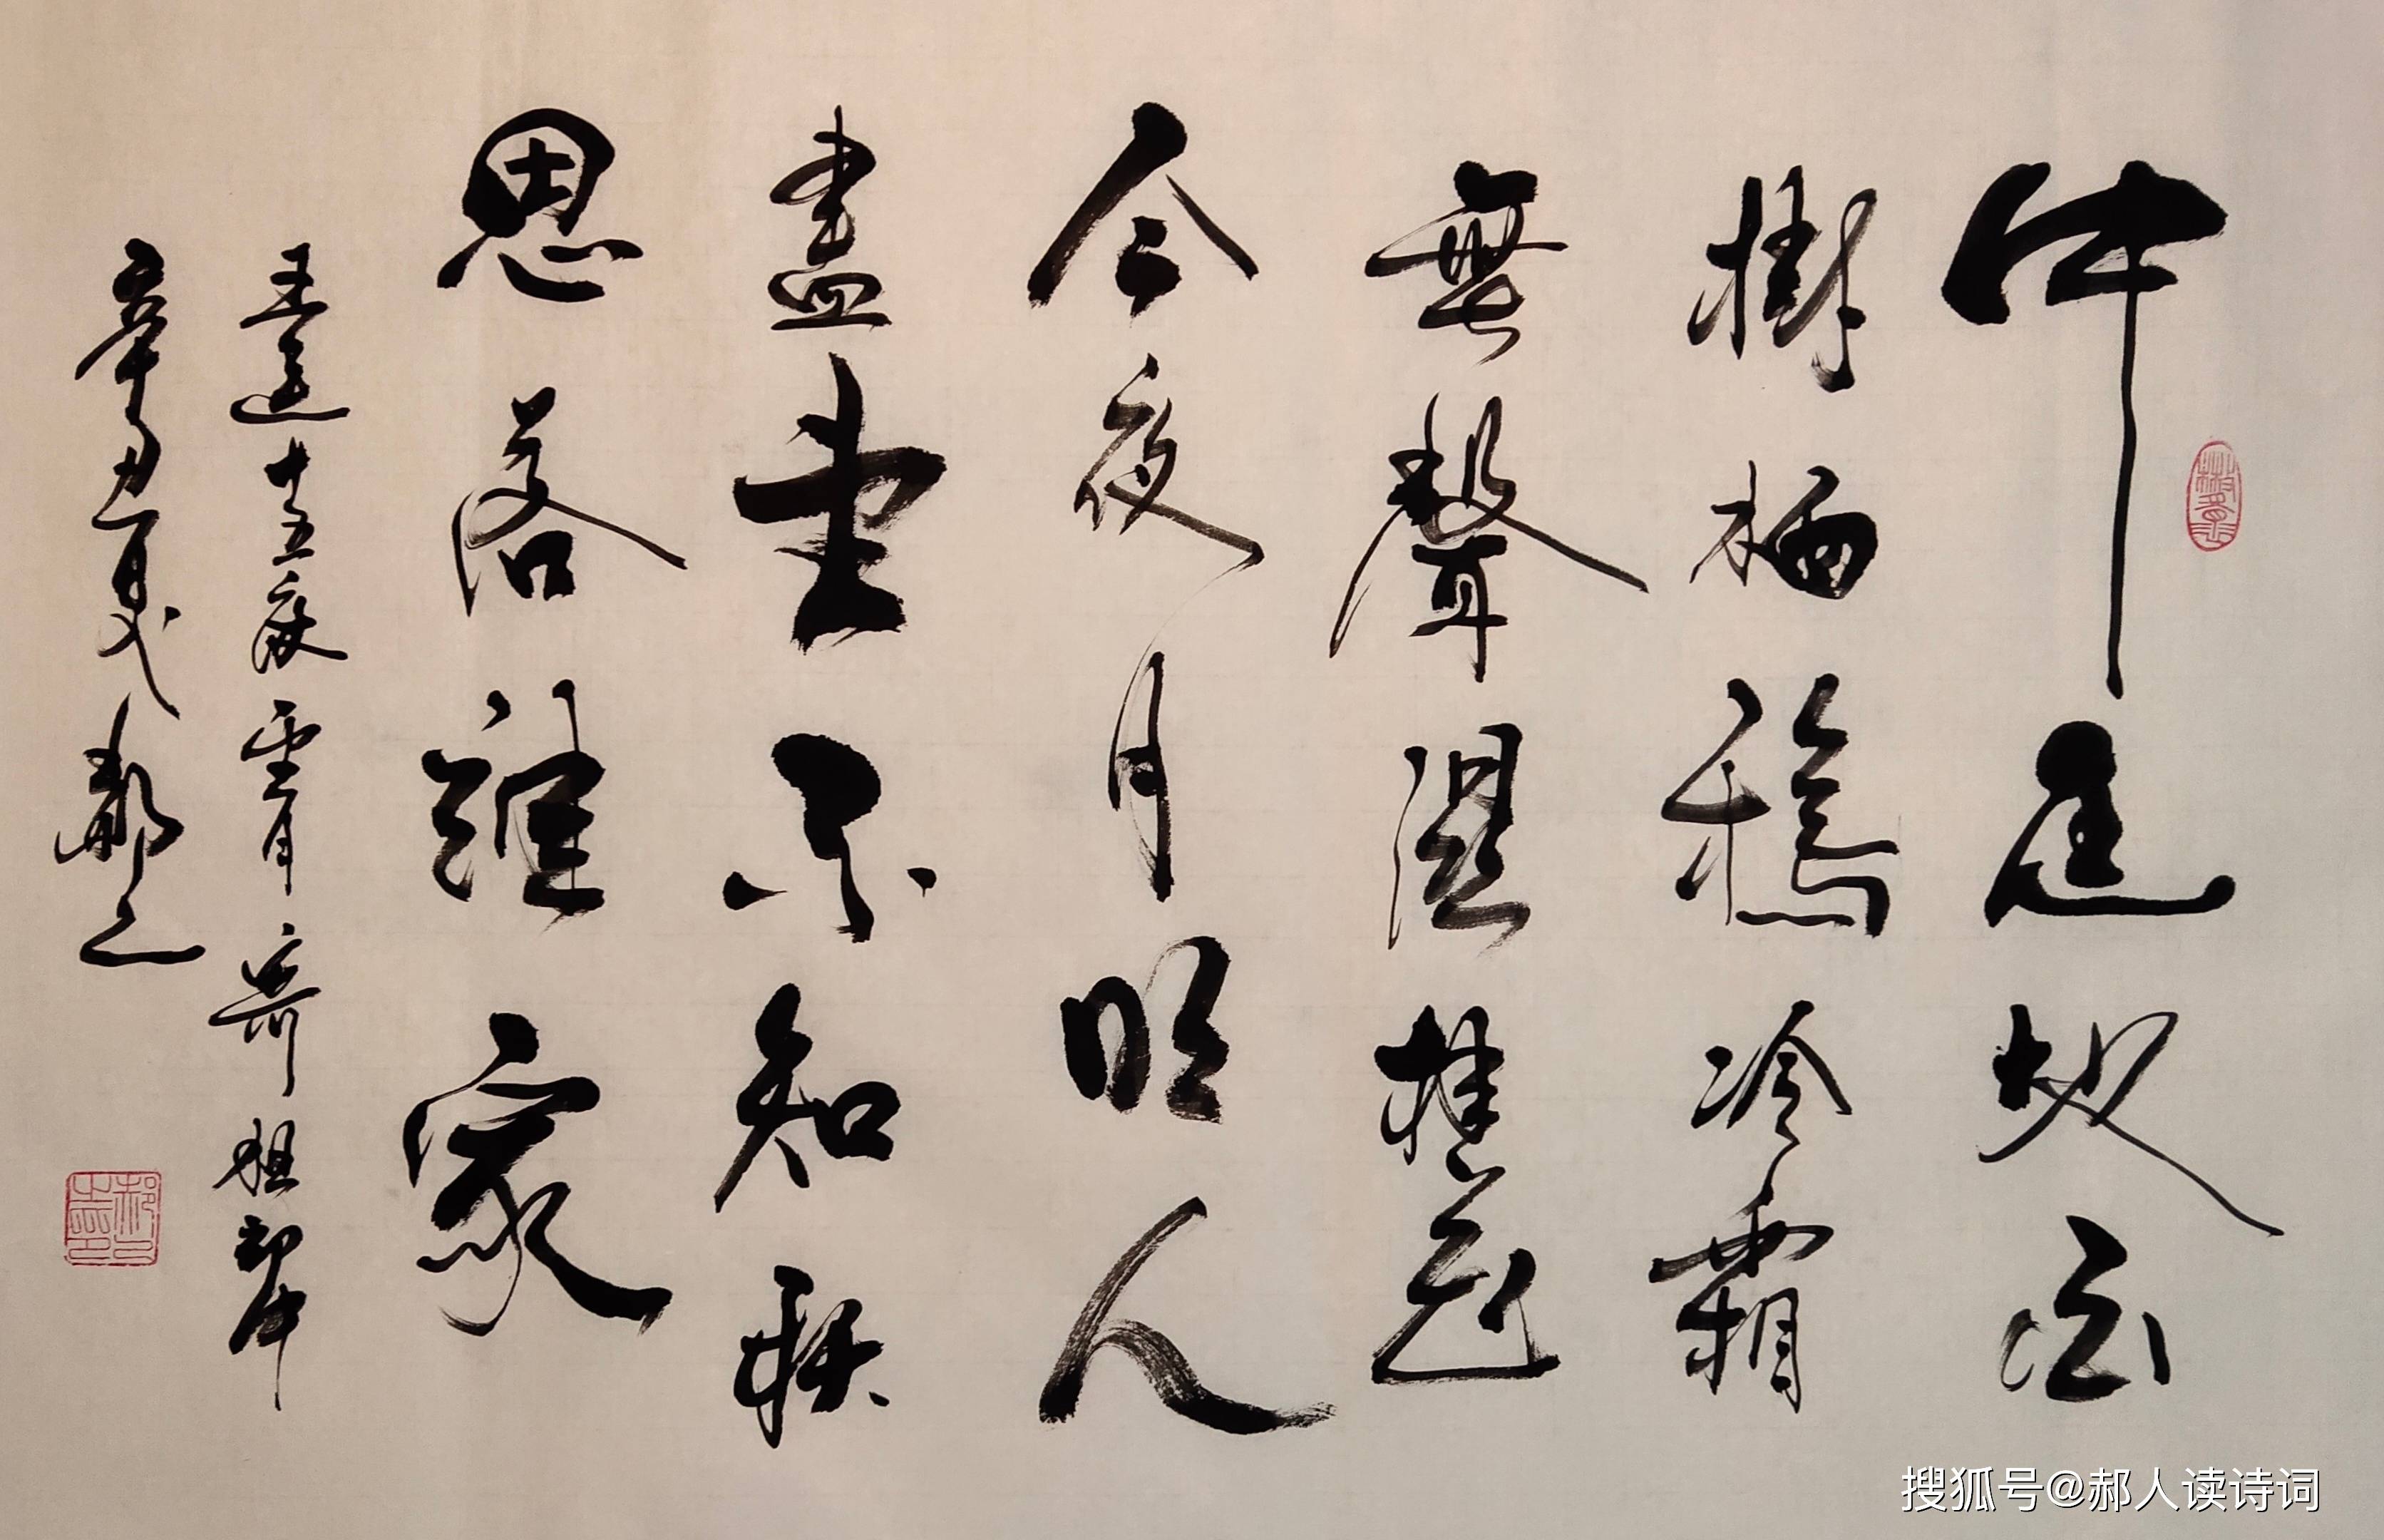 中庭地白
樹栖鴉冷霜
無聲濕桂花
今夜月明人
盡望不知秋
思落誰家
王建十五夜望月寄杜郎中
辛丑夏郝
搜狐号@郝人读诗词